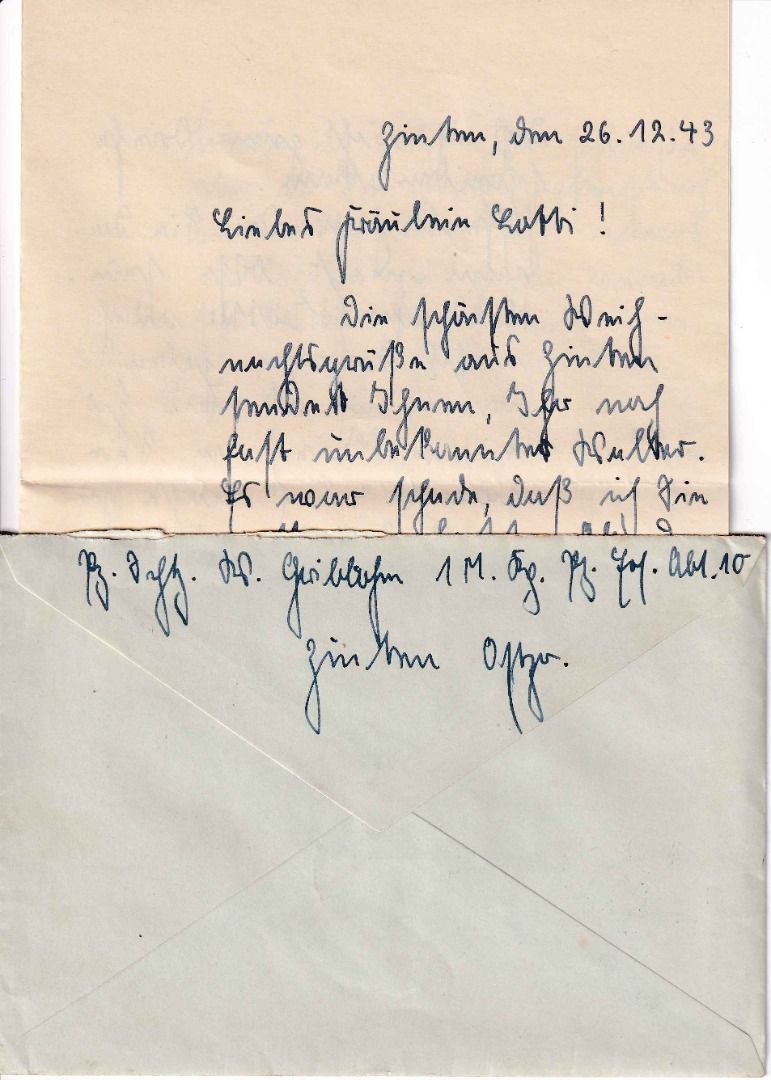 Zinten, den 26.12.43
Liebes Fräulein Lotti!
Die schönsten Weih-
nachtsgrüße aus Zinten
sendet Ihnen, Ihr noch
fast unbekannter Walter.
Es war schade, daß ich Sie
Pz. Schtz. W. 1 M. Kp. Pz. Ers. Abt. 10
Zinten Ostpr.